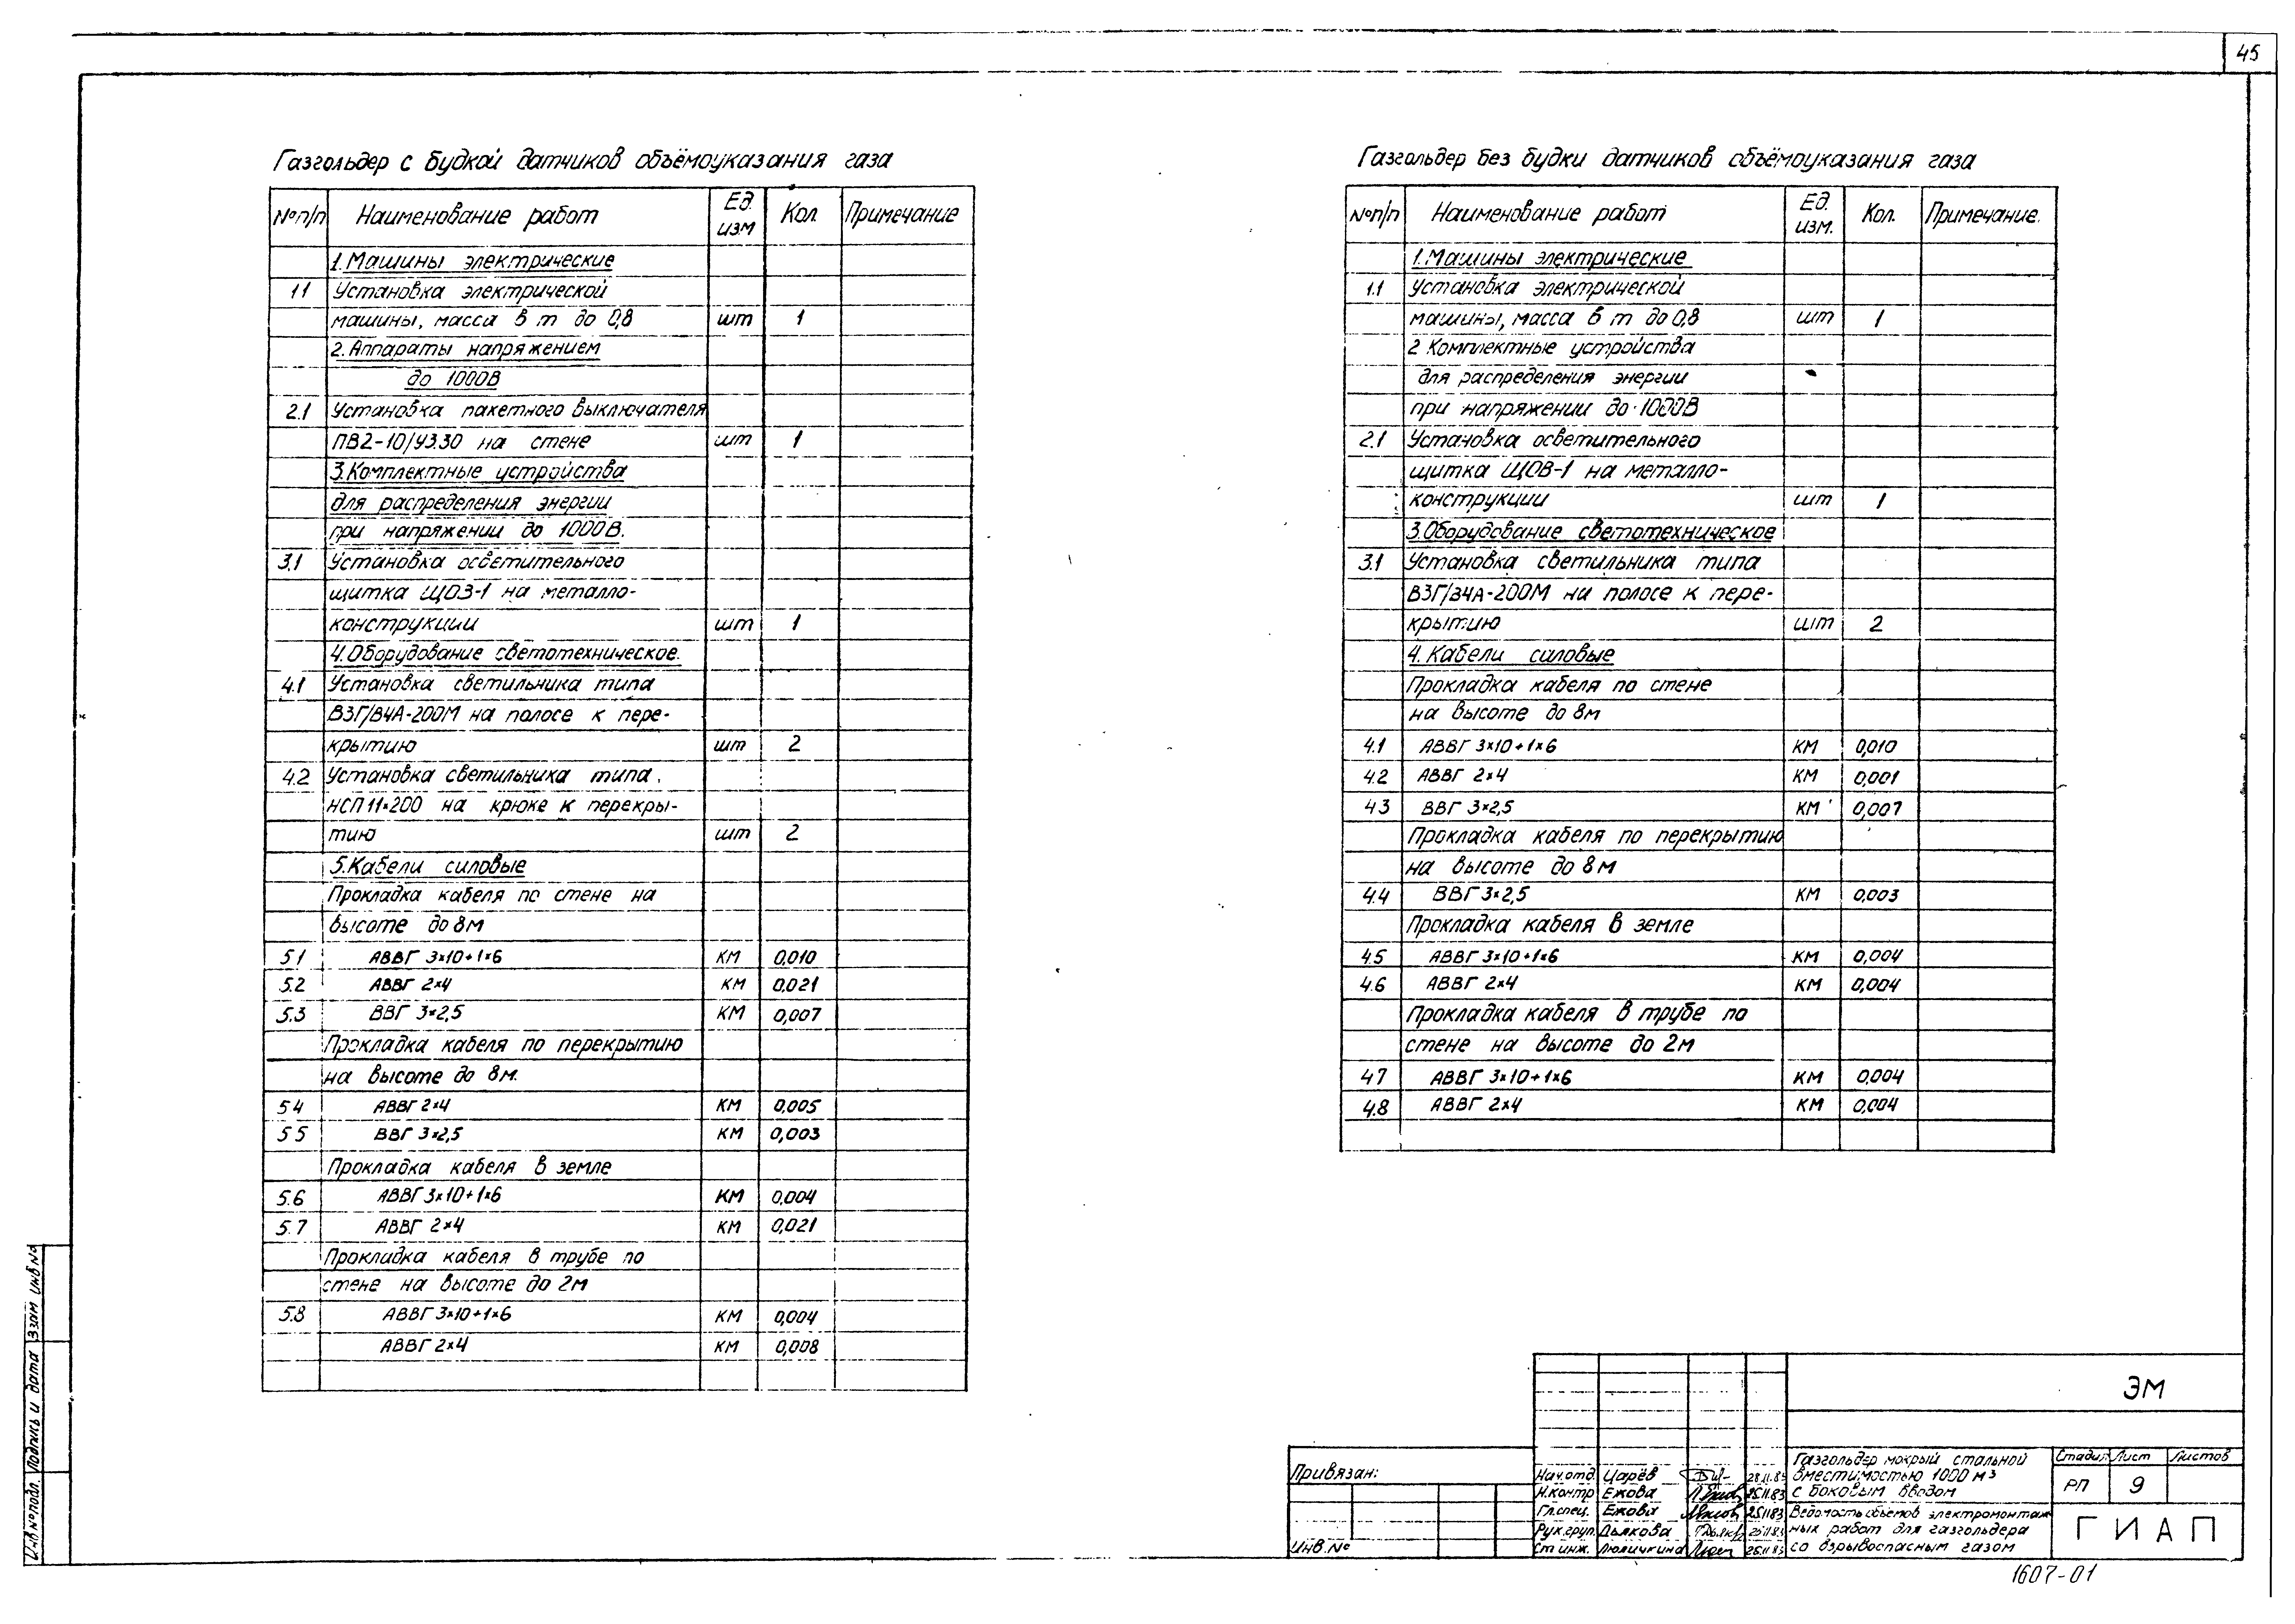 45
Газгольдер с будкой датчиков объёмоуказания газа
№п/п Наименование работ Ед. изм Кол Примечание
1. Машины электрические
1.1 Установка электрической
машины, масса в т до 0,8 шт 1
2. Аппараты напряжением
до 1000В
2.1 Установка пакетного выключателя
ПВ2-10/У3.30 на стене шт 1
3. Комплектные устройства
для распределения энергии
при напряжении до 1000В.
3.1 Установка осветительного
щитка ЩОЗ-1 на металло-
конструкции шт 1
4. Оборудование светотехническое.
4.1 Установка светильника типа
ВЗГ/В4А-200М на полосе к пере-
крытию шт 2
4.2 Установка светильника типа
НСП11×200 на крюке к перекры-
тию шт 2
5. Кабели силовые
Прокладка кабеля по стене на
высоте до 8м
5.1 АВВГ 3×10+1×6 км 0,010
5.2 АВВГ 2×4 км 0,021
5.3 ВВГ 3×2,5 км 0,007
Прокладка кабеля по перекрытию
на высоте до 8м.
5.4 АВВГ 2×4 км 0,005
5.5 ВВГ 3×2,5 км 0,003
Прокладка кабеля в земле
5.6 АВВГ 3×10+1×6 км 0,004
5.7 АВВГ 2×4 км 0,021
Прокладка кабеля в трубе по
стене на высоте до 2м
5.8 АВВГ 3×10+1×6 км 0,004
АВВГ 2×4 км 0,008
Газгольдер без будки датчиков объёмоуказания газа
№п/п Наименование работ Ед. изм. Кол. Примечание.
1. Машины электрические
1.1 Установка электрической
машины, масса в т до 0,8 шт 1
2 Комплектные устройства
для распределения энергии
при напряжении до 1000В
2.1 Установка осветительного
щитка ЩОВ-1 на металло-
конструкции шт 1
3. Оборудование светотехническое
3.1 Установка светильника типа
ВЗГ/В4А-200М на полосе к пере-
крытию шт 2
4. Кабели силовые
Прокладка кабеля по стене
на высоте до 8м
4.1 АВВГ 3×10+1×6 км 0,010
4.2 АВВГ 2×4 км 0,001
4.3 ВВГ 3×2,5 км 0,007
Прокладка кабеля по перекрытию
на высоте до 8м
4.4 ВВГ 3×2,5 км 0,003
Прокладка кабеля в земле
4.5 АВВГ 3×10+1×6 км 0,004
4.6 АВВГ 2×4 км 0,004
Прокладка кабеля в трубе по
стене на высоте до 2м
4.7 АВВГ 3×10+1×6 км 0,004
4.8 АВВГ 2×4 км 0,004
Инв № подл. Подпись и дата Взам инв №
Привязан:
Инв. №
ЭМ
Нач.отд Царёв 28.11.83
Н.контр Ежова 25.11.83
Гл.спец. Ежова 25.11.83
Рук.груп. Дьякова 25.11.83
Ст инж. Люличкина 25.11.83
Газгольдер мокрый стальной
вместимостью 1000 м³
с боковым вводом
Стадия Лист Листов
РП 9
Ведомость объемов электромонтаж
ных работ для газгольдера
со взрывоопасным газом
ГИАП
1607-01